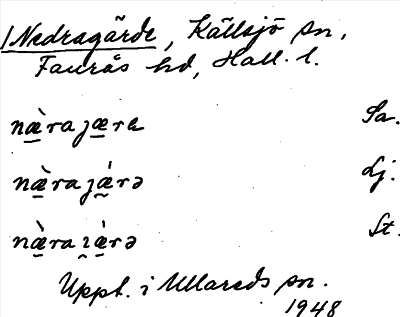 /Nedragärde, Källsjö sn,
Faurås hd, Hall. l.
næ̀rajære Sa.
næ̀rajǽrə Lj.
næ̀raɿǽrə St.
Uppt. i Ullareds sn.
1948